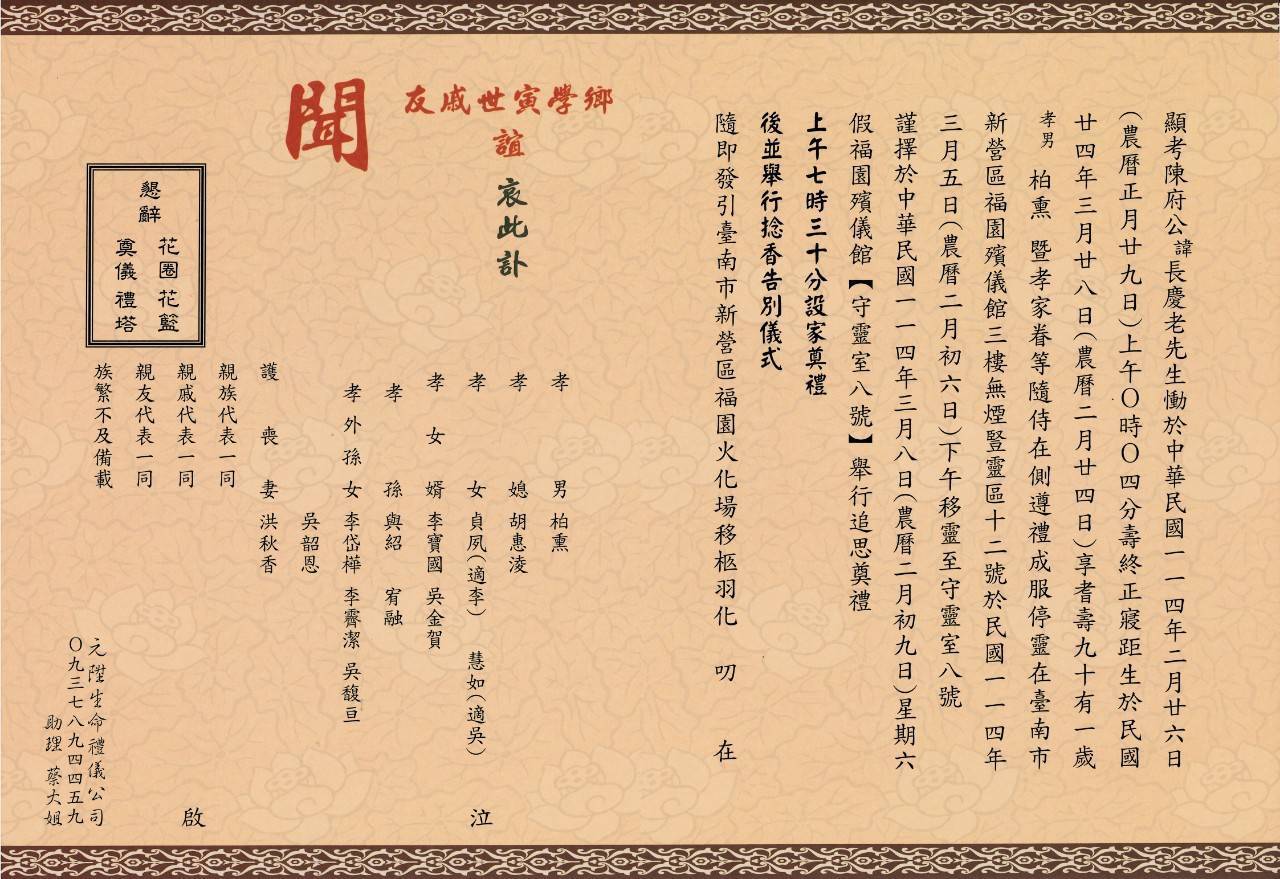 顯考陳府公諱長慶老先生慟於中華民國一一四年二月廿六日
(農曆正月廿九日)上午〇時〇四分壽終正寢距生於民國
廿四年三月廿八日(農曆二月廿四日)享耆壽九十有一歲
孝男 柏熏 暨孝家眷等隨侍在側遵禮成服停靈在臺南市
新營區福園殯儀館三樓無煙豎靈區十二號於民國一一四年
三月五日(農曆二月初六日)下午移靈至守靈室八號
謹擇於中華民國一一四年三月八日(農曆二月初九日)星期六
假福園殯儀館【守靈室八號】舉行追思奠禮
上午七時三十分設家奠禮
後並舉行捻香告別儀式
隨即發引臺南市新營區福園火化場移柩羽化 叨 在
鄉學寅世戚友
誼
哀此訃
聞
孝男 柏熏
孝媳 胡惠淩
孝女 貞夙(適李) 慧如(適吳)
孝女婿 李寶國 吳金賀
孝孫 與紹 宥融
孝外孫女 李岱樺 李霽潔 吳馥亘
吳韶恩
護喪妻 洪秋香
親族代表一同
親戚代表一同
親友代表一同
族繁不及備載
泣
啟
懇辭
花圈 花籃
奠儀 禮塔
元陞生命禮儀公司
〇九三七八九四四五九
助理 蔡大姐